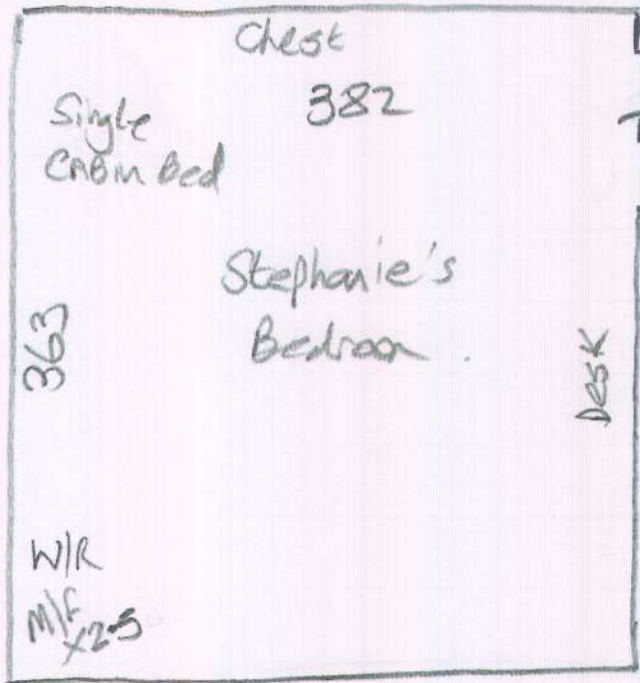 Chest
382
Single
CABIN Bed
Stephanie's
Bedroom.
363
Desk
W/R
M/F
x2.5